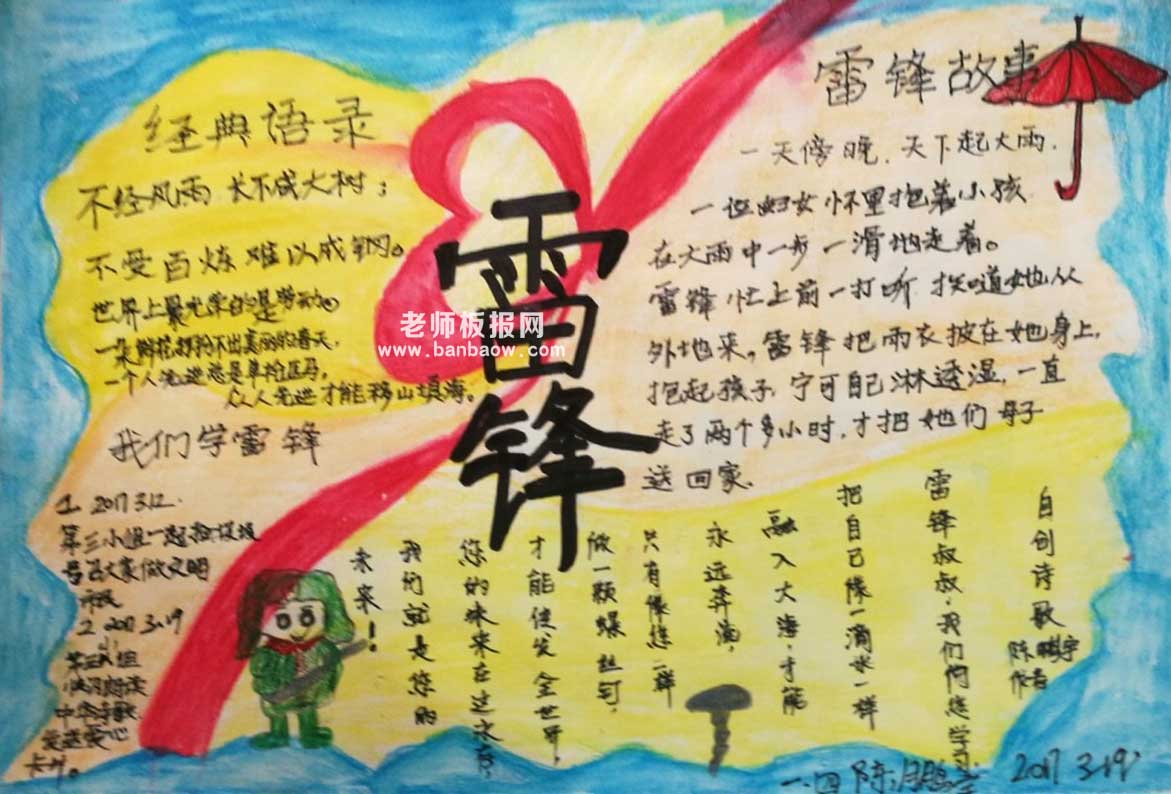 经典语录
不经风雨 长不成大树；
不受百炼 难以成钢。
世界上最光荣的是劳动。
一朵鲜花打扮不出美丽的春天，
一个人先进总是单枪匹马，
众人先进才能移山填海。
我们学雷锋
1. 2017 3.12.
第三小组一起捡垃圾
号召大家做文明
市民
2. 2017 3.19
爱心
雷锋
老师板报网
www.banbaow.com
雷锋故事
一天傍晚，天下起大雨，
一位妇女怀里抱着小孩
在大雨中一步一滑地走着。
雷锋忙上前一打听 才知道她从
外地来，雷锋把雨衣披在她身上，
抱起孩子，宁可自己淋透湿，一直
走了两个多小时，才把她们母子
送回家。
自创诗歌
作者
雷锋叔叔，我们向您学习
把自己像一滴水一样
融入大海，才能
永远奔涌，
只有像您一样
做一颗螺丝钉，
才能使发全世界，
您的未来在这永存，
我们就是您的
未来！
2017 3.19